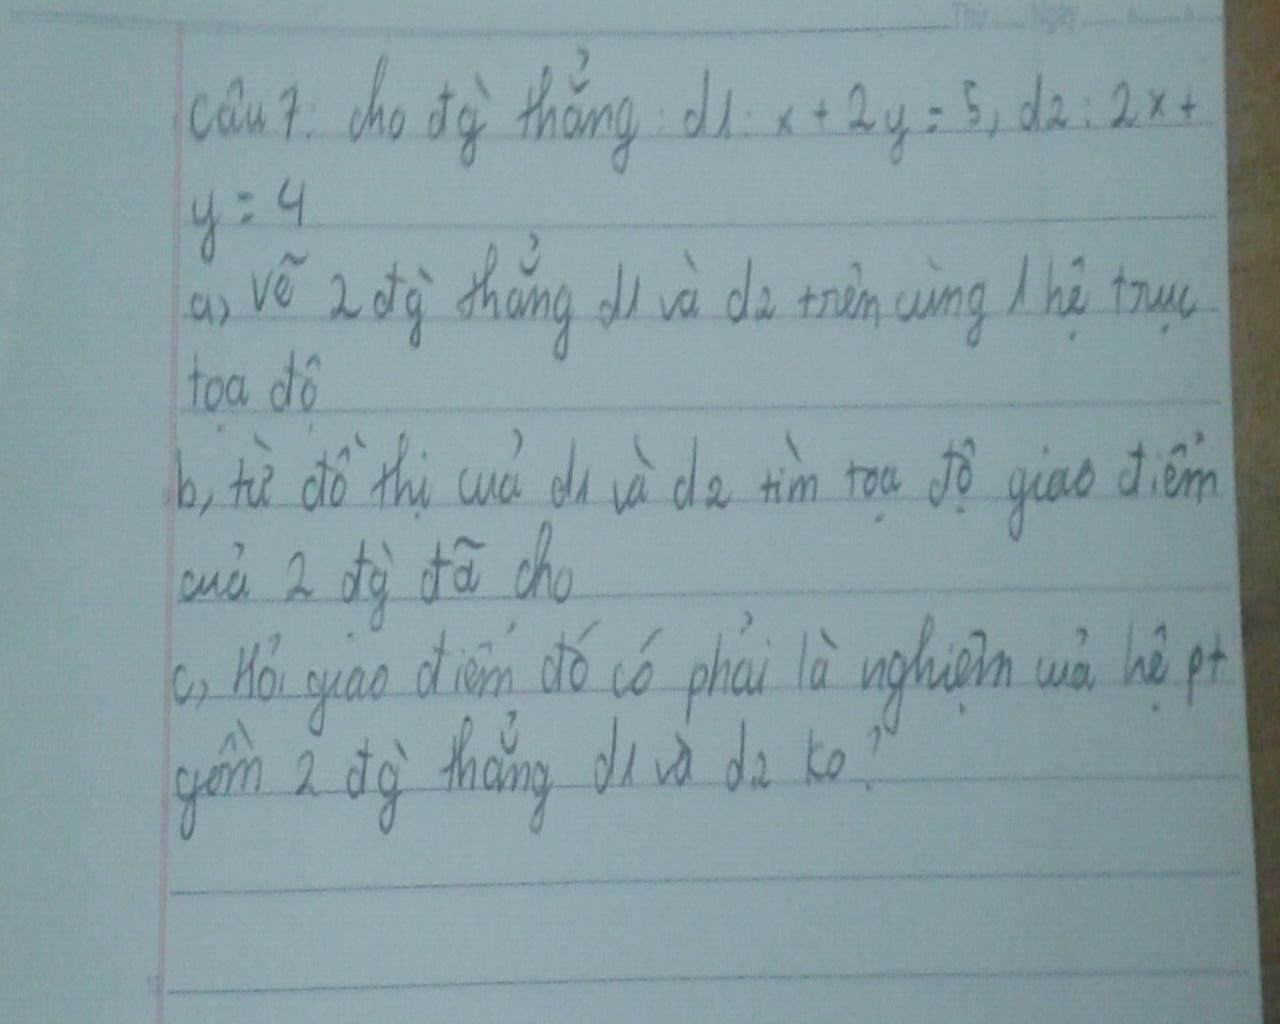 Thứ Ngày
Câu 7: cho đg̀ thẳng: d1: x + 2y = 5, d2: 2x +
y = 4
a, vẽ 2 đg̀ thẳng d1 và d2 trên cùng 1 hệ trục
tọa độ
b, từ đồ thị của d1 và d2 tìm tọa độ giao điểm
của 2 đg̀ đã cho
c, Hỏi giao điểm đó có phải là nghiệm của hệ pt
gồm 2 đg̀ thẳng d1 và d2 ko?